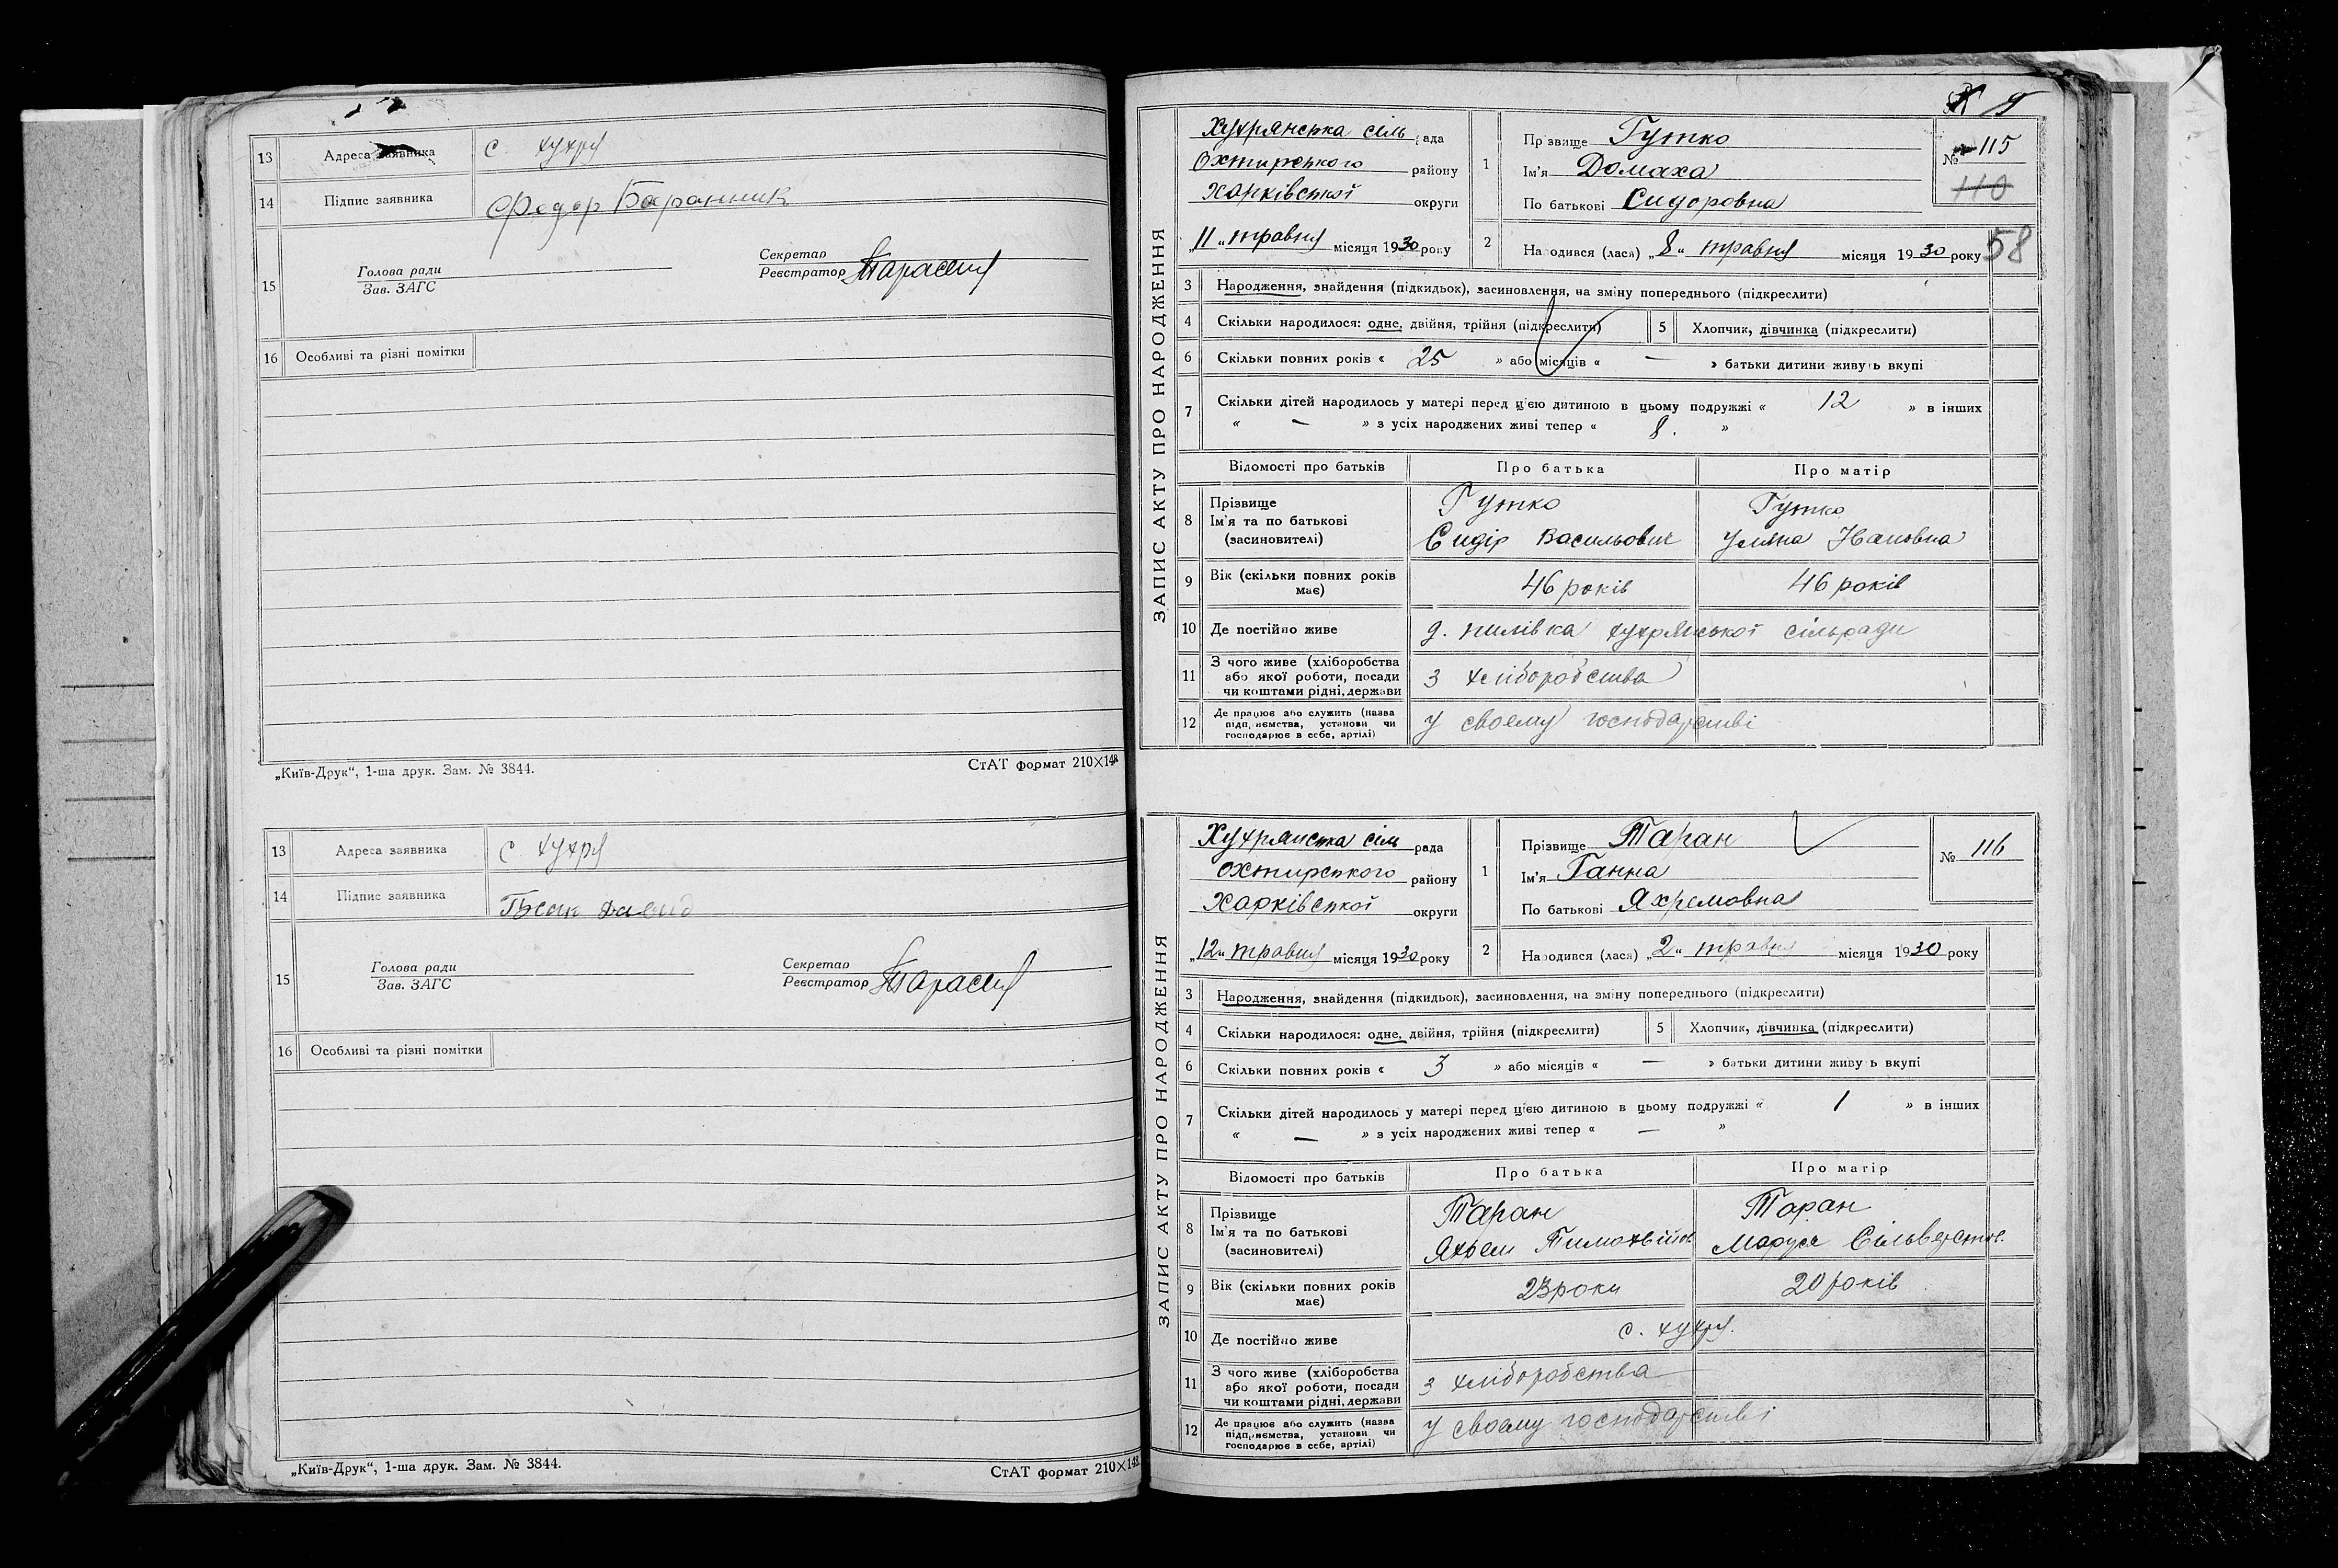 13 Адреса заявника с. Хухря
14 Підпис заявника Федор Баранник
15 Голова ради
Зав. ЗАГС
Секретар
Реєстратор
16 Особливі та різні помітки
„Київ-Друк“, 1-ша друк. Зам. № 3844. СтАТ формат 210×148
13 Адреса заявника с Хухря
14 Підпис заявника
15 Голова ради
Зав. ЗАГС
Секретар
Реєстратор
16 Особливі та різні помітки
„Київ-Друк“, 1-ша друк. Зам. № 3844. СтАТ формат 210×148
ЗАПИС АКТУ ПРО НАРОДЖЕННЯ
Хухрянська сіль рада
Охтирського району
Харківської округи
„11“ травня місяця 1930 року
1 Прізвище Гутко
Ім'я Домаха
По батькові Сидоровна
№ 115
110
2 Народився (лася) „8“ травня місяця 1930 року 58
3 Народження, знайдення (підкидьок), засиновлення, на зміну попереднього (підкреслити)
4 Скільки народилося: одне, двійня, трійня (підкреслити) 5 Хлопчик, дівчинка (підкреслити)
6 Скільки повних років « 25 » або місяців « — » батьки дитини живуть вкупі
7 Скільки дітей народилось у матері перед цією дитиною в цьому подружжі « 12 » в інших
« — » з усіх народжених живі тепер « 8. »
Відомості про батьків Про батька Про матір
8 Прізвище Гутко Гутко
Ім'я та по батькові
(засиновителі) Сидір Васильович Уляна Івановна
9 Вік (скільки повних років має) 46 років 46 років
10 Де постійно живе д. Пилівка Хухрянської сільради
11 З чого живе (хліборобства або якої роботи, посади чи коштами рідні, держави з хліборобства
12 Де працює або служить (назва підприємства, установи чи господарює в себе, артілі) у своему господарстві
ЗАПИС АКТУ ПРО НАРОДЖЕННЯ
Хухрянска сіль рада
Охтирського району
Харківської округи
„12“ травня місяця 1930 року
1 Прізвище Таран
Ім'я Ганна
По батькові Яхремовна
№ 116
2 Народився (лася) „2“ травня місяця 1930 року
3 Народження, знайдення (підкидьок), засиновлення, на зміну попереднього (підкреслити)
4 Скільки народилося: одне, двійня, трійня (підкреслити) 5 Хлопчик, дівчинка (підкреслити)
6 Скільки повних років « 3 » або місяців « — » батьки дитини живуть вкупі
7 Скільки дітей народилось у матері перед цією дитиною в цьому подружжі « 1 » в інших
« — » з усіх народжених живі тепер « — »
Відомості про батьків Про батька Про матір
8 Прізвище Таран Таран
Ім'я та по батькові
(засиновителі) Яхрем Тимохвійов Маруся Сільверстов.
9 Вік (скільки повних років має) 23 роки 20 років
10 Де постійно живе с. Хухря.
11 З чого живе (хліборобства або якої роботи, посади чи коштами рідні, держави з хліборобства
12 Де працює або служить (назва підприємства, установи чи господарює в себе, артілі) у своему господарстві